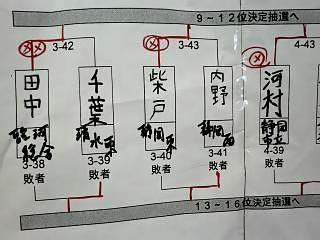 9～12位決定抽選へ
3-42
3-43
4-43
田中
千葉
柴戸
内野
河村
清水東
静岡東
静岡西
静岡市立
3-38
3-39
3-40
3-41
4-39
敗者
敗者
敗者
敗者
敗者
13～16位決定抽選へ